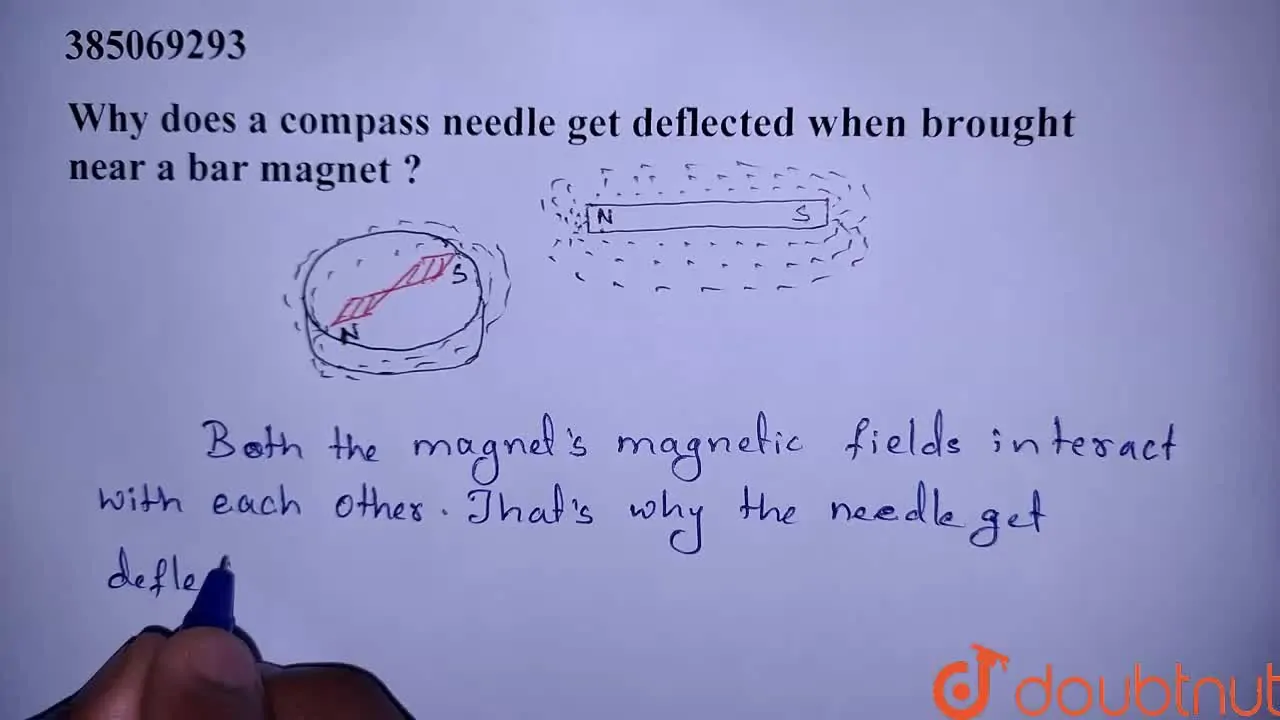 385069293
Why does a compass needle get deflected when brought
near a bar magnet ?
N S
S
N
Both the magnet's magnetic fields interact
with each other. That's why the needle get
defle
doubtnut